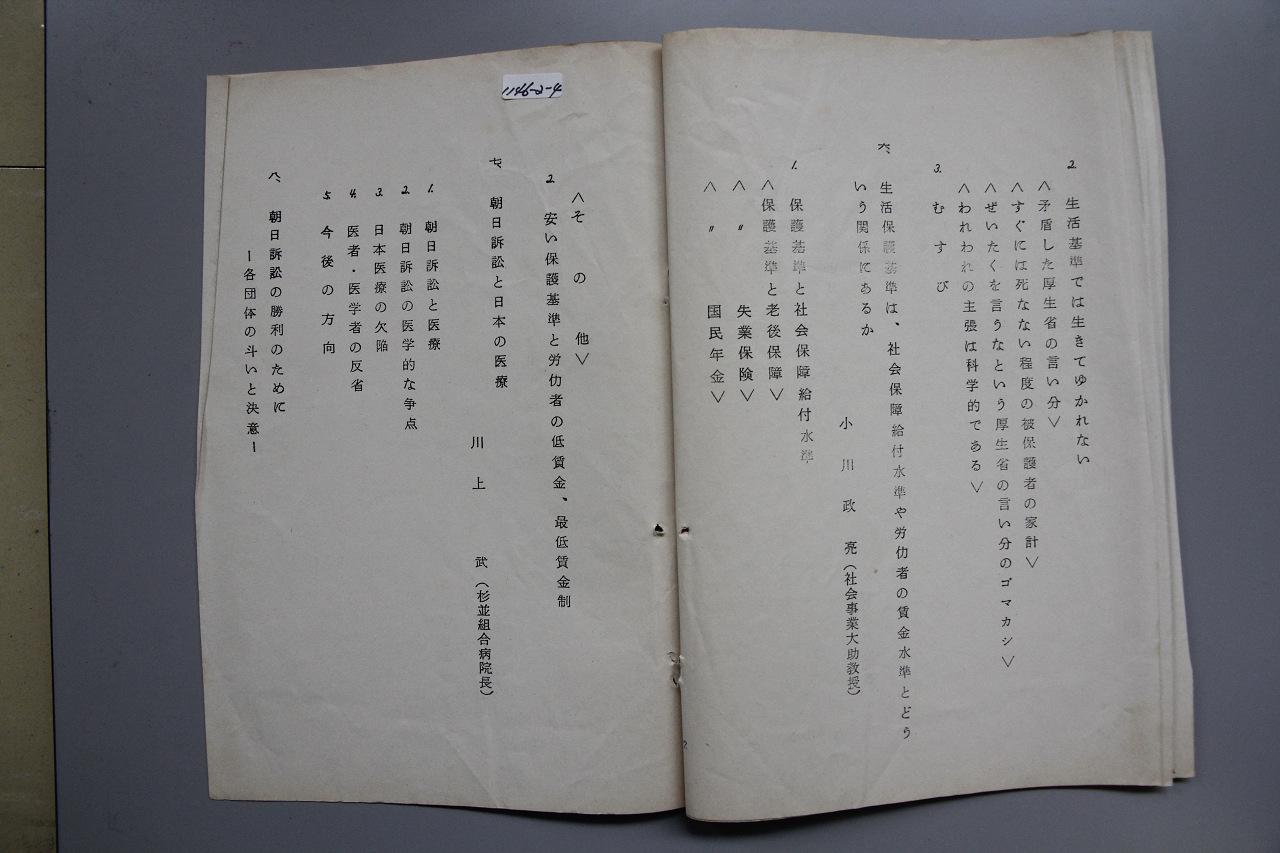 2. 生活基準では生きてゆかれない
〈矛盾した厚生省の言い分〉
〈すぐには死なない程度の被保護者の家計〉
〈ぜいたくを言うなという厚生省の言い分のゴマカシ〉
〈われわれの主張は科学的である〉
3. むすび
六、生活保護基準は、社会保障給付水準や労仂者の賃金水準とどう
いう関係にあるか
小川政亮(社会事業大助教授)
1. 保護基準と社会保障給付水準
〈保護基準と老後保障〉
〈〃 失業保険〉
〈〃 国民年金〉
2
1146-2-4
〈その他〉
2. 安い保護基準と労仂者の低賃金、最低賃金制
七、朝日訴訟と日本の医療
川上 武(杉並組合病院長)
1. 朝日訴訟と医療
2. 朝日訴訟の医学的な争点
3. 日本医療の欠陥
4. 医者・医学者の反省
5. 今後の方向
八、朝日訴訟の勝利のために
―各団体の斗いと決意―